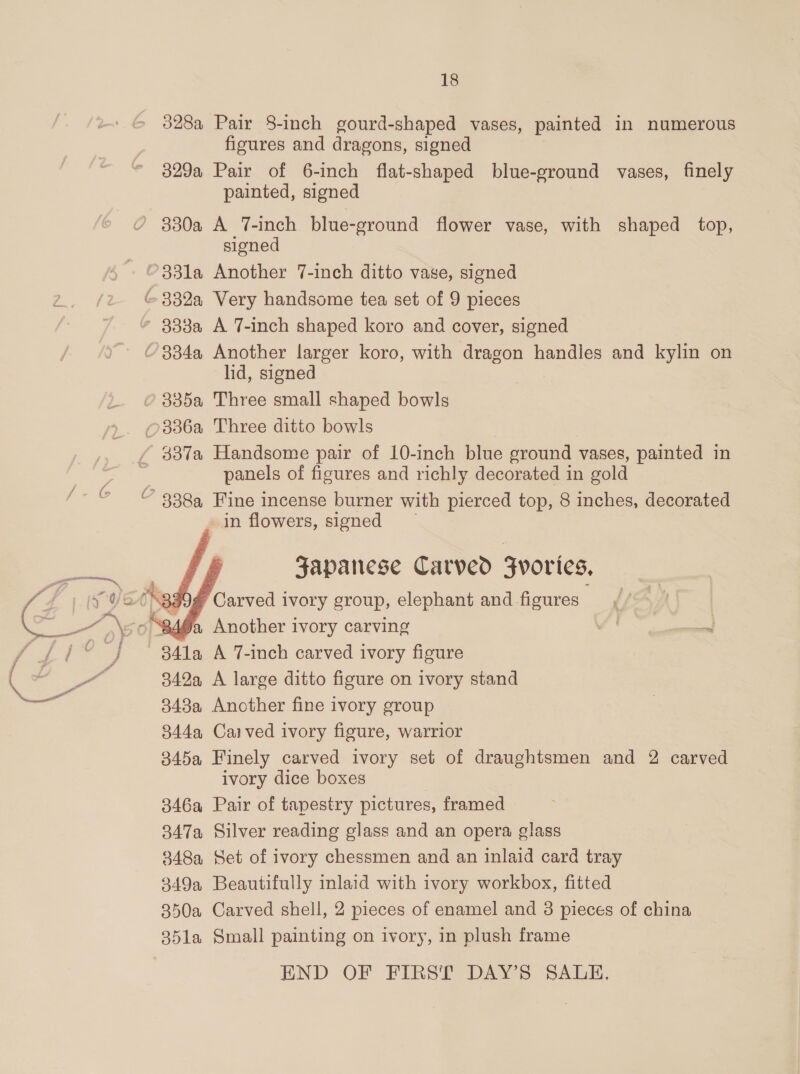 18
328a Pair 8-inch gourd-shaped vases, painted in numerous
figures and dragons, signed
329a Pair of 6-inch flat-shaped blue-ground vases, finely
painted, signed
330a A 7-inch blue-ground flower vase, with shaped top,
signed
331a Another 7-inch ditto vase, signed
332a Very handsome tea set of 9 pieces
333a A 7-inch shaped koro and cover, signed
334a Another larger koro, with dragon handles and kylin on
lid, signed
335a Three small shaped bowls
336a Three ditto bowls
337a Handsome pair of 10-inch blue ground vases, painted in
panels of figures and richly decorated in gold
338a Fine incense burner with pierced top, 8 inches, decorated
in flowers, signed
Japanese Carved Ivories.
339a Carved ivory group, elephant and figures
340a Another ivory carving
341a A 7-inch carved ivory figure
342a A large ditto figure on ivory stand
343a Another fine ivory group
344a Carved ivory figure, warrior
345a Finely carved ivory set of draughtsmen and 2 carved
ivory dice boxes
346a Pair of tapestry pictures, framed
347a Silver reading glass and an opera glass
348a Set of ivory chessmen and an inlaid card tray
349a Beautifully inlaid with ivory workbox, fitted
350a Carved shell, 2 pieces of enamel and 3 pieces of china
351a Small painting on ivory, in plush frame
END OF FIRST DAY'S SALE.